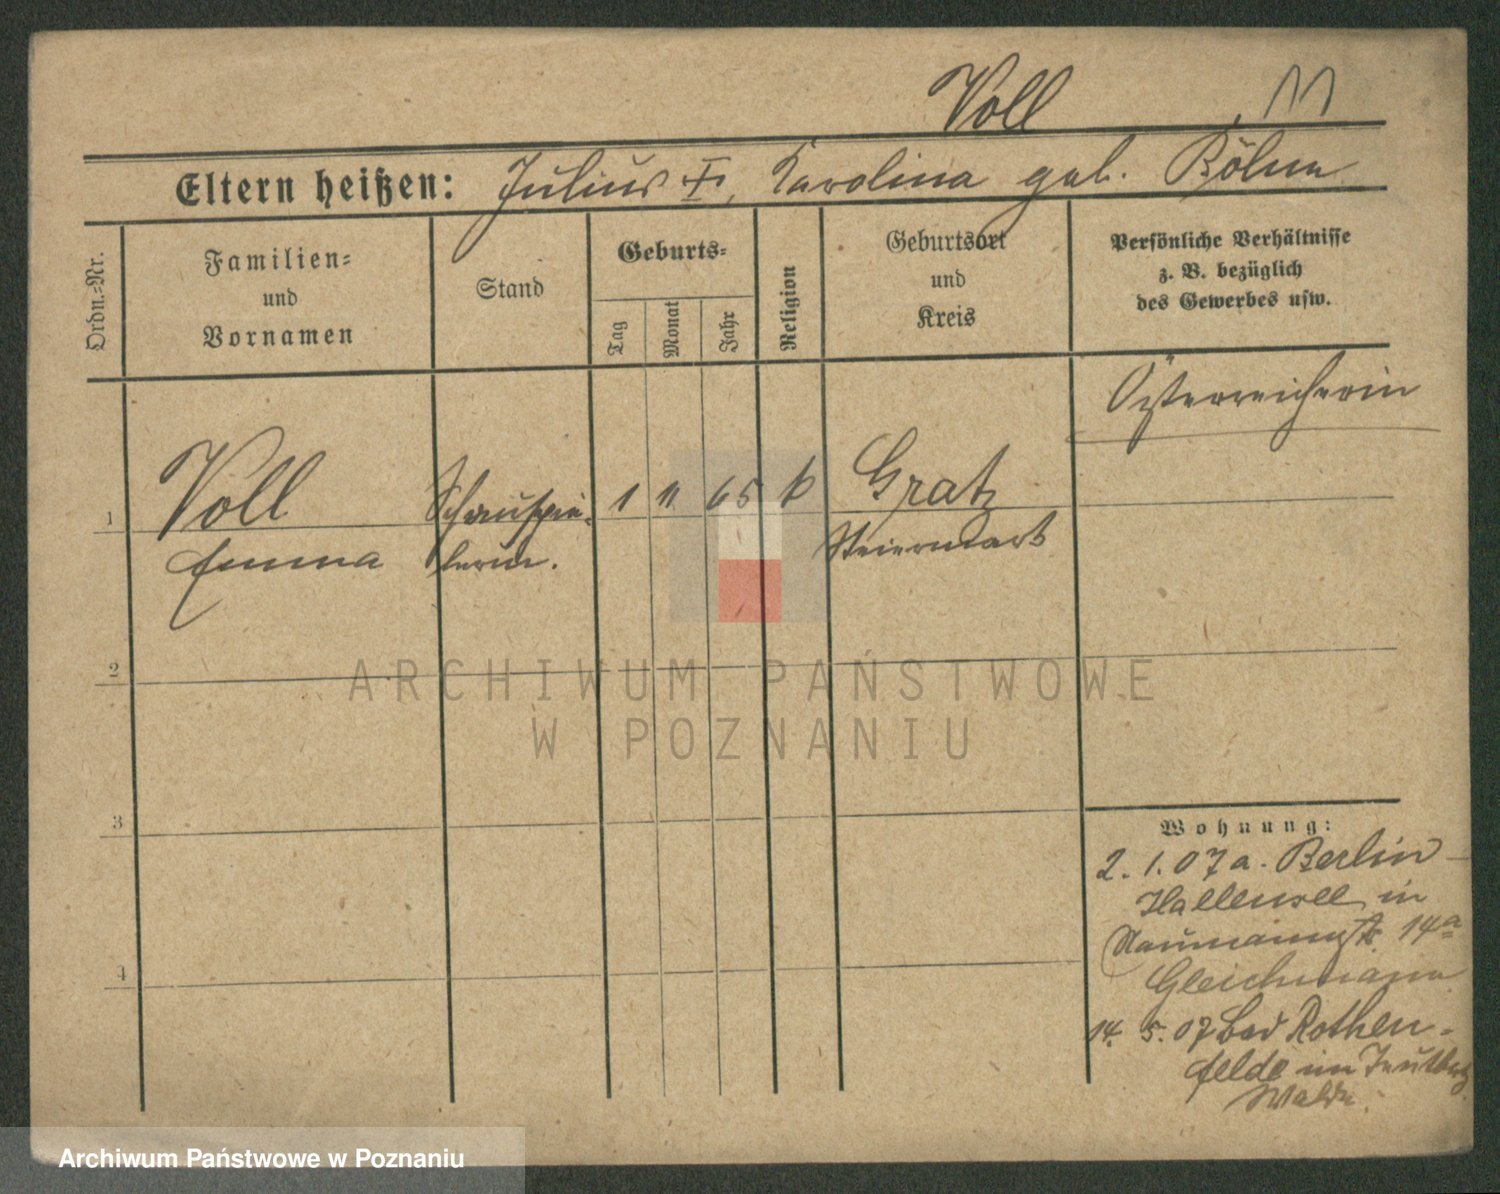 Voll
11
Eltern heißen: Julius †, Karolina geb. Böhm
Ordn.-Nr.
Familien-
und
Vornamen
Stand
Geburts-
Tag
Monat
Jahr
Religion
Geburtsort
und
Kreis
Persönliche Verhältnisse
z. B. bezüglich
des Gewerbes usw.
Österreicherin
1
Voll
Emma
Schauspie-
lerin.
1
11
65
k
Gratz
Steiermark
2
3
4
Wohnung:
2. 1. 07 a. Berlin-
Hallensee in
Naumannstr. 14a
Gleichmann
14. 5. 07 Bad Rothen-
felde im
Walde.
ARCHIWUM PAŃSTWOWE
W POZNANIU
Archiwum Państwowe w Poznaniu